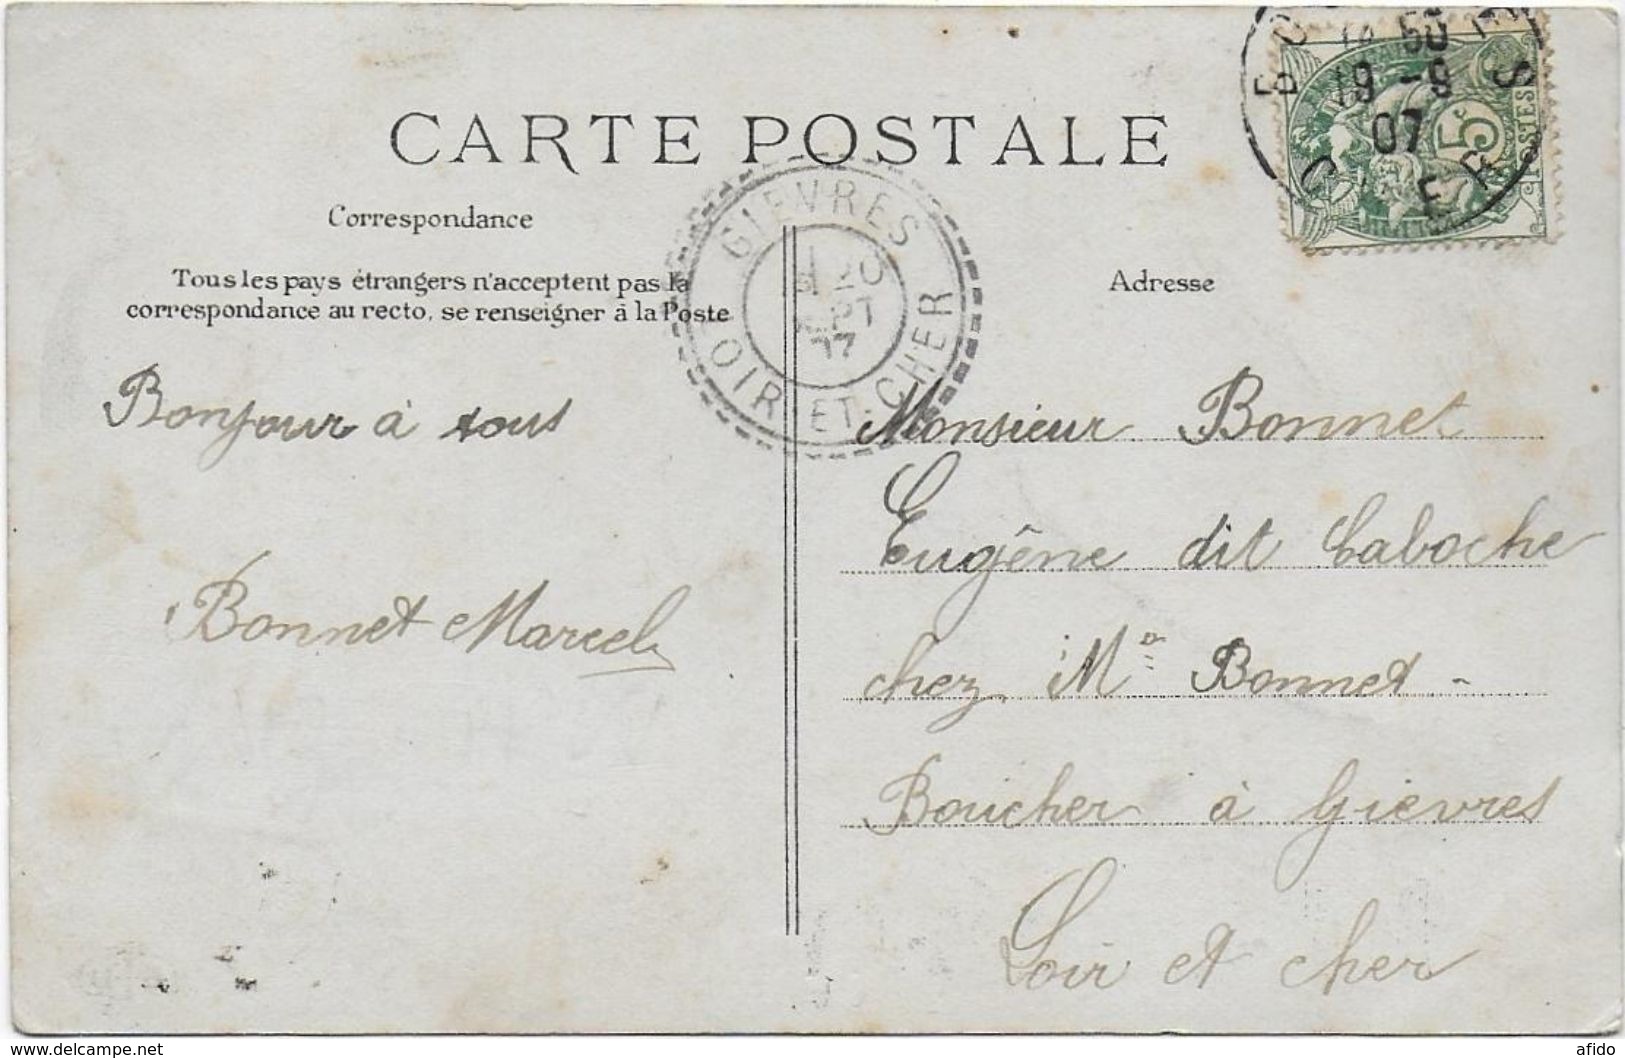 CARTE POSTALE
Correspondance
Tous les pays étrangers n'acceptent pas la
correspondance au recto, se renseigner à la Poste
Adresse
GIEVRES
20
LOIR-ET-CHER
50
19 -9
07
5c
POSTES
CHER
Bonjour à tous
Bonnet Marcel
Monsieur Bonnet
Eugêne dit Caboche
chez Mr Bonnet -
Boucher à Gièvres
Loir et cher
www.delcampe.net
afido